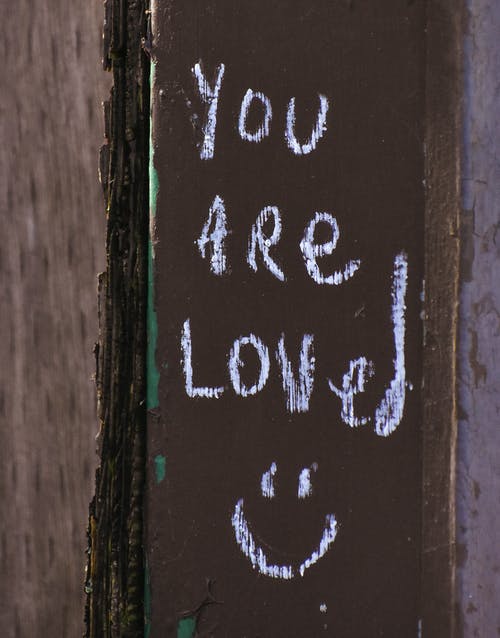 YOU
ARe
LOVed